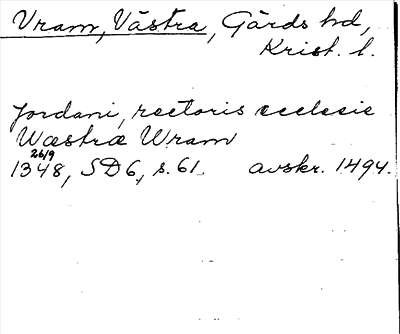 Vram, Västra, Gärds hd,
Krist. l.
Jordani, rectoris ecclesie
Wæstræ Wram
26/9
1348, SD6, s. 61. avskr. 1494.